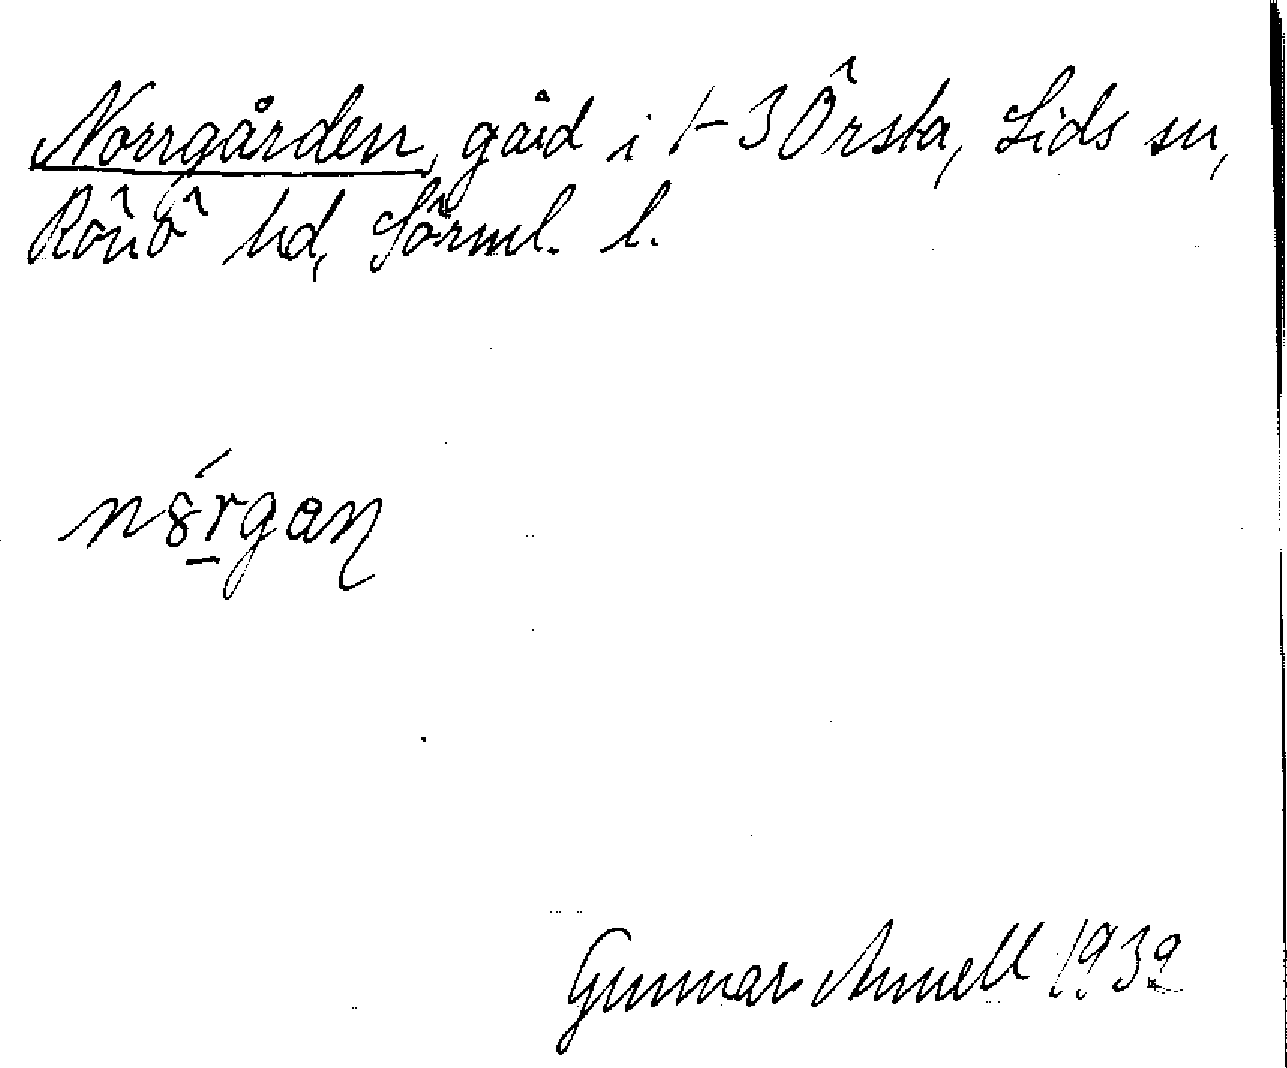 Norrgården, gård i 1-3 Örsta, Lids sn,
Rönö hd, Sörml. l.
n8́r̲gaɳ
Gunnar Annell 1932